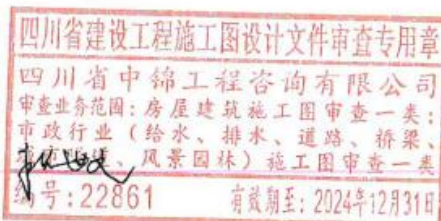 四川省建设工程施工图设计文件审查专用章
四川省中锦工程咨询有限公司
审查业务范围：房屋建筑施工图审查一类；
市政行业（给水、排水、道路、桥梁、
、风景园林）施工图审查一类
编号：22861 有效期至：2024年12月31日